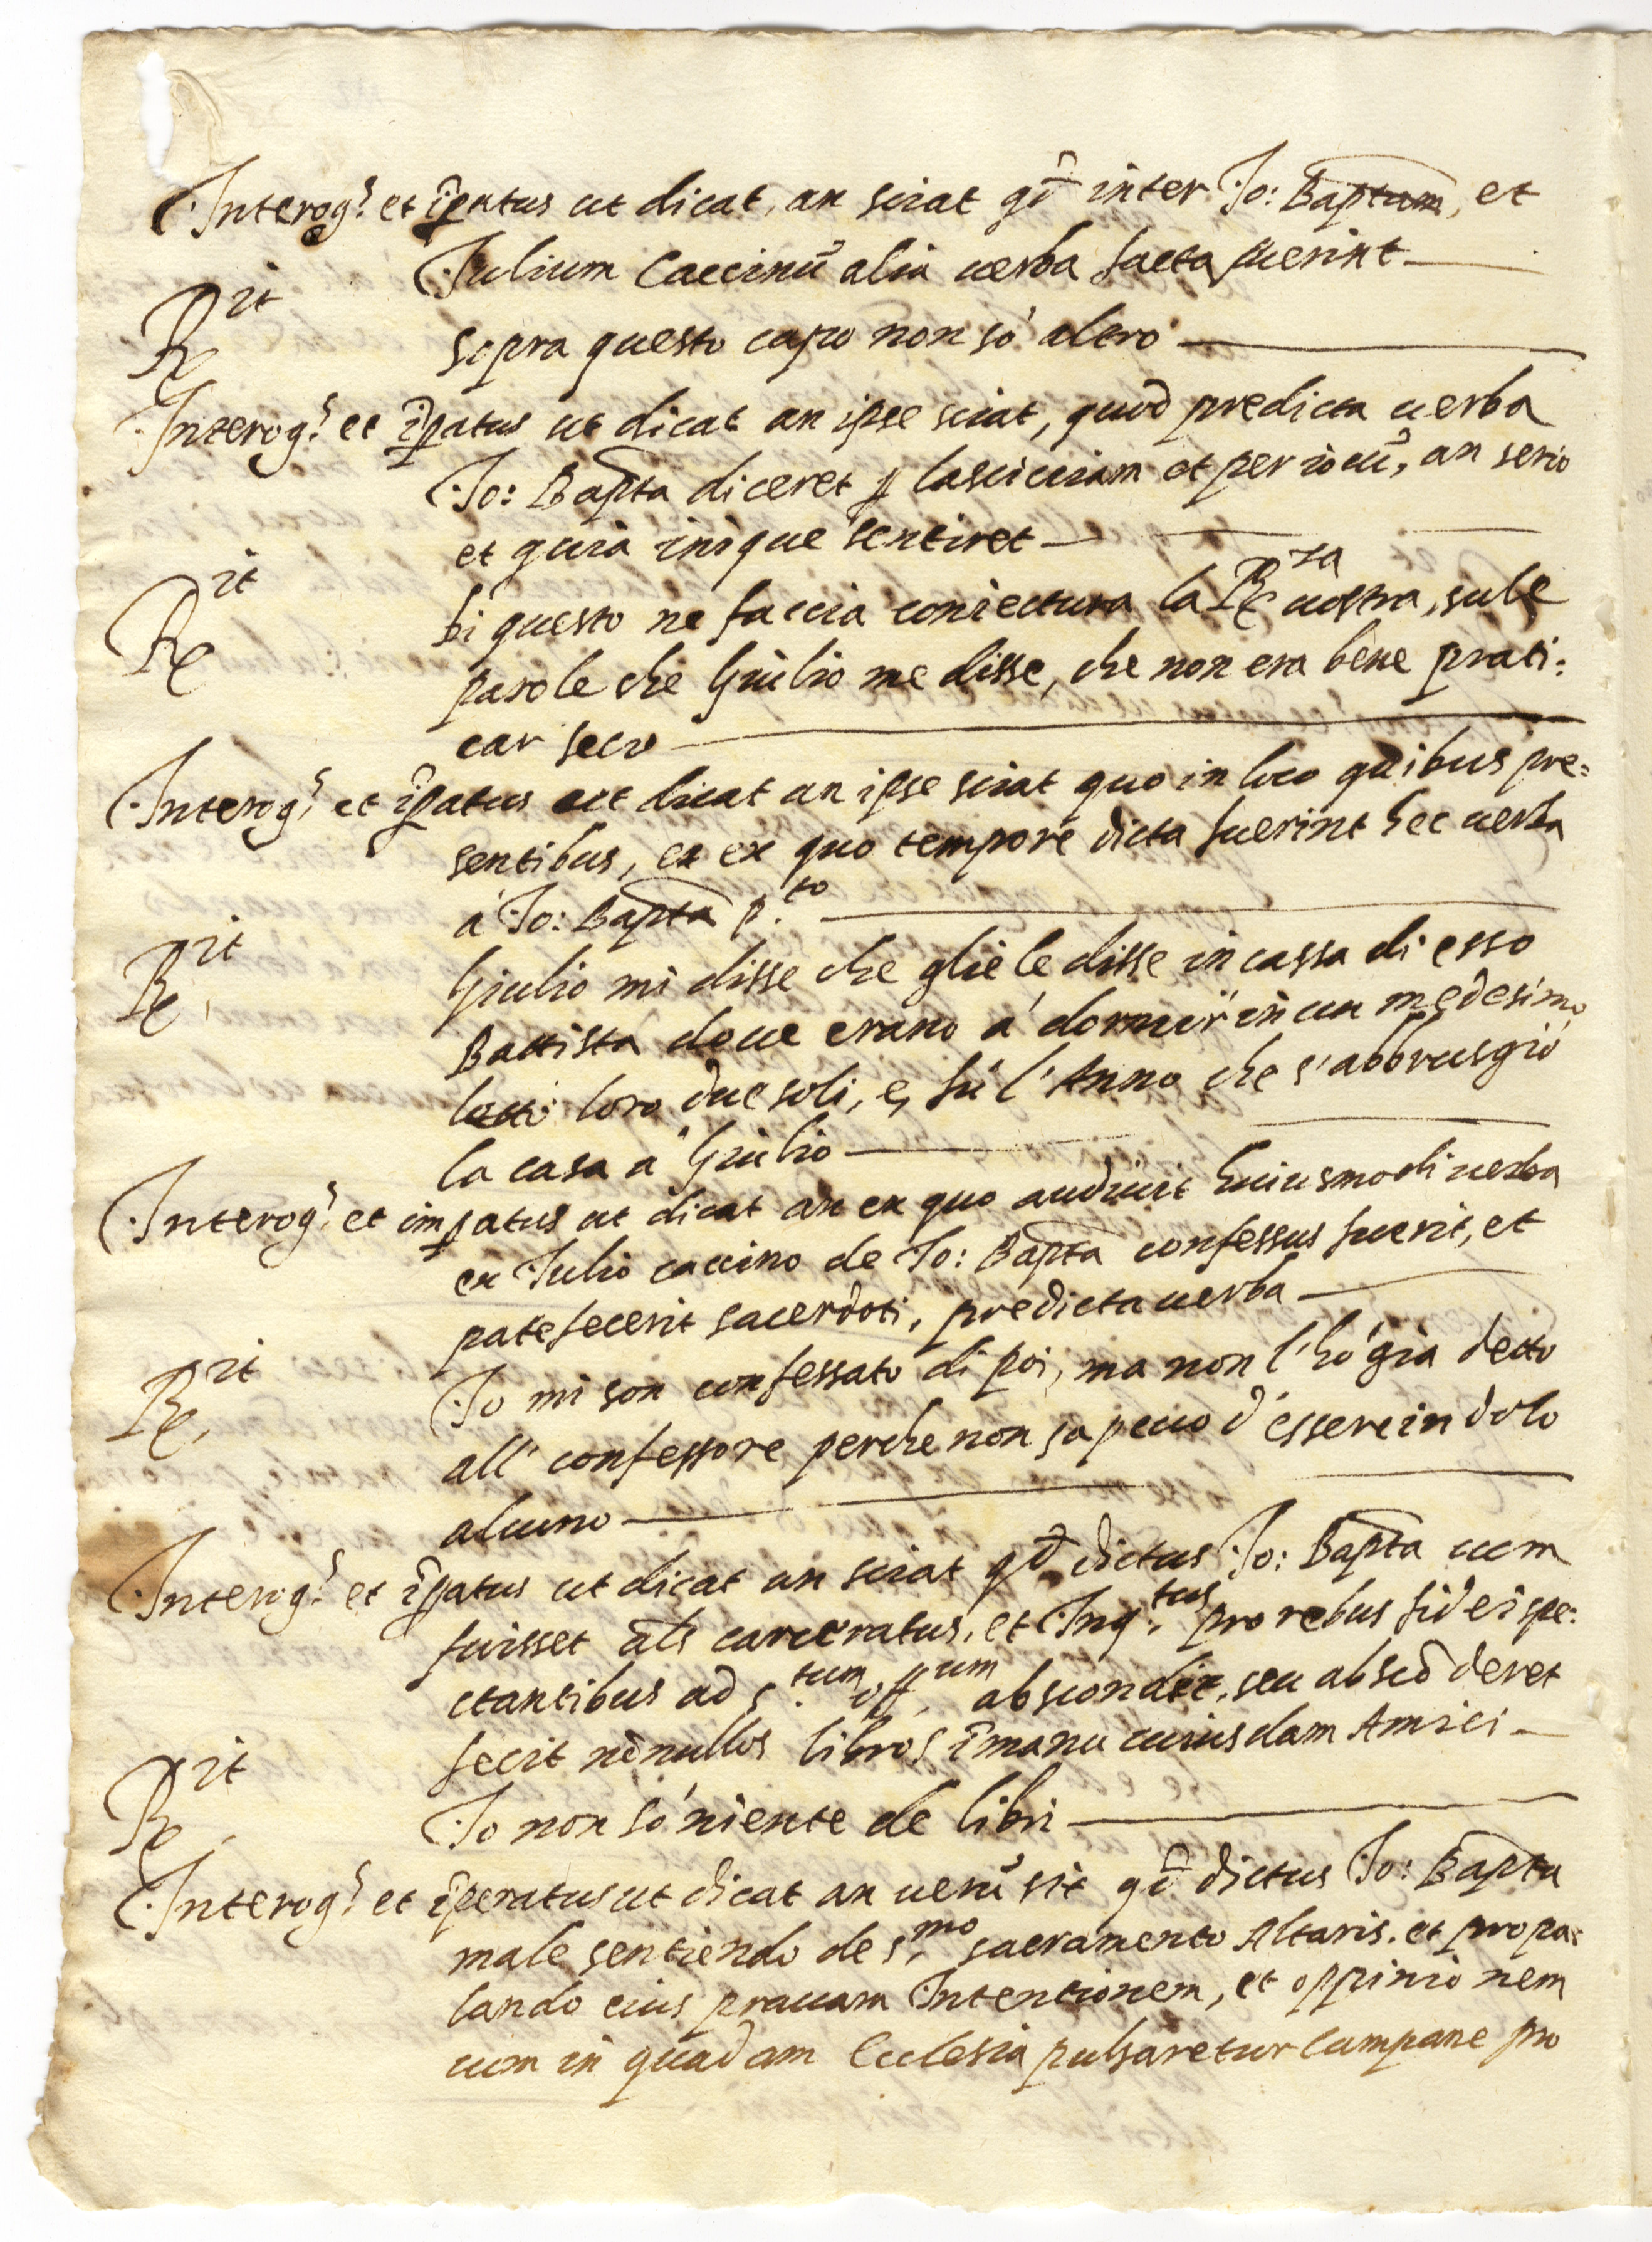 Interog.s et ĩpatus ut dicat, an sciat qd̃ inter Io: Baptam, et
Iulium Caccinũ alia uerba facta fuerint
Rit sopra questo capo non só altro
Interog.s et ĩpatus ut dicat an ipse sciat, quod predicta uerba
Io: Bapta diceret p lasciuiam et per iocũ, an serio
et quia inique sentiret
Rit Di questo ne faccia coniectura la R.za uostra, sule
parole che Giulio me disse, che non era bene prati:
car seco
Interog.s et ĩpatus ut dicat an ipse sciat quo in loco quibus pre:
sentibus, et ex quo tempore dicta fuerint hec uerba
á Io: Bapta p.to
Rit Giulio mi disse che gliele disse in cassa di esso
Battista doue erano á dormir in un medesimo
letto loro due soli, e, fú l'Anno che s'abbrusgió
la casa a Giulio
Interog.s et impatus ut dicat an ex quo audiuit huiusmodi uerba
ex Iulio caccino de Io: Bapta confessus fuerit, et
patefecerit sacerdoti, predicta uerba
Rit Io mi son confessato di poi, ma non l'hó gia detto
all' confessore perche non sapeuo d'essere in dolo
alcuno
Interog.s et ĩpatus ut dicat an sciat qd̃ dictus Io: Bapta cum
fuisset als carceratus, et Inq.tus pro rebus fidei spe:
ctantibus ad s.tum off.um abscondit, seu abscõderet
fecit nõnullos libros ĩ manu cuiusdam Amici
Rit Io non só niente de libri
Interog.s et ĩperatus ut dicat an uerũ sit qd̃ dictus Io: Bapta
male sentiendo de s.mo sacramento Altaris. et propa:
lando eius prauam Intentionem, et oppinionem
cum in quadam Ecclesia pulsaretur Campane pro